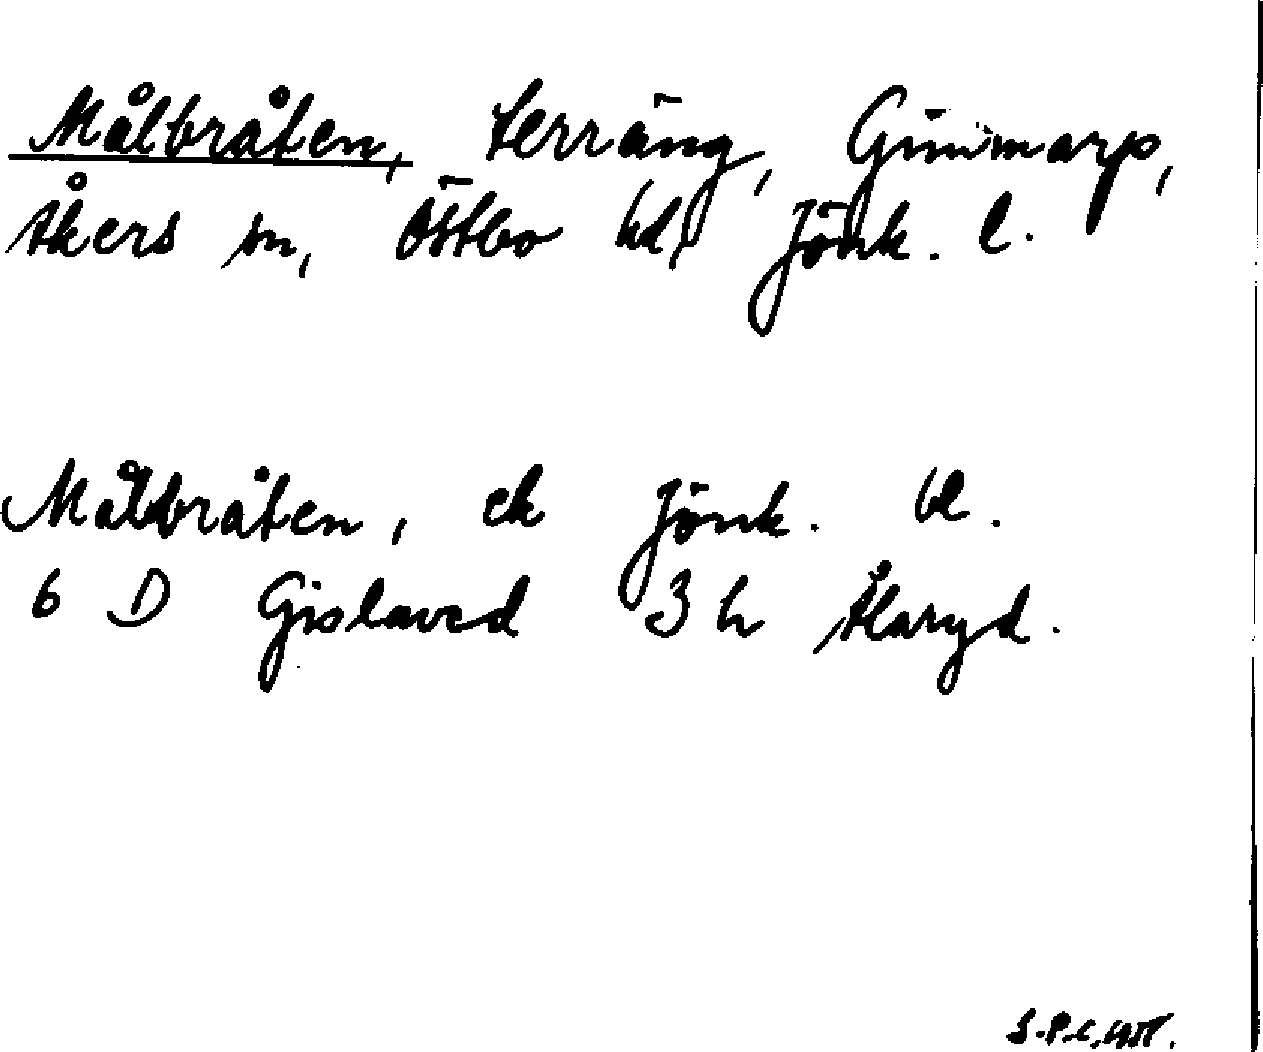 Målbråten, terräng, Gimmarp,
Åkers sn, Östbo hd, Jönk. l.
Målbråten, ek Jönk. bl.
6 D Gislaved 3 h Åkaryd.